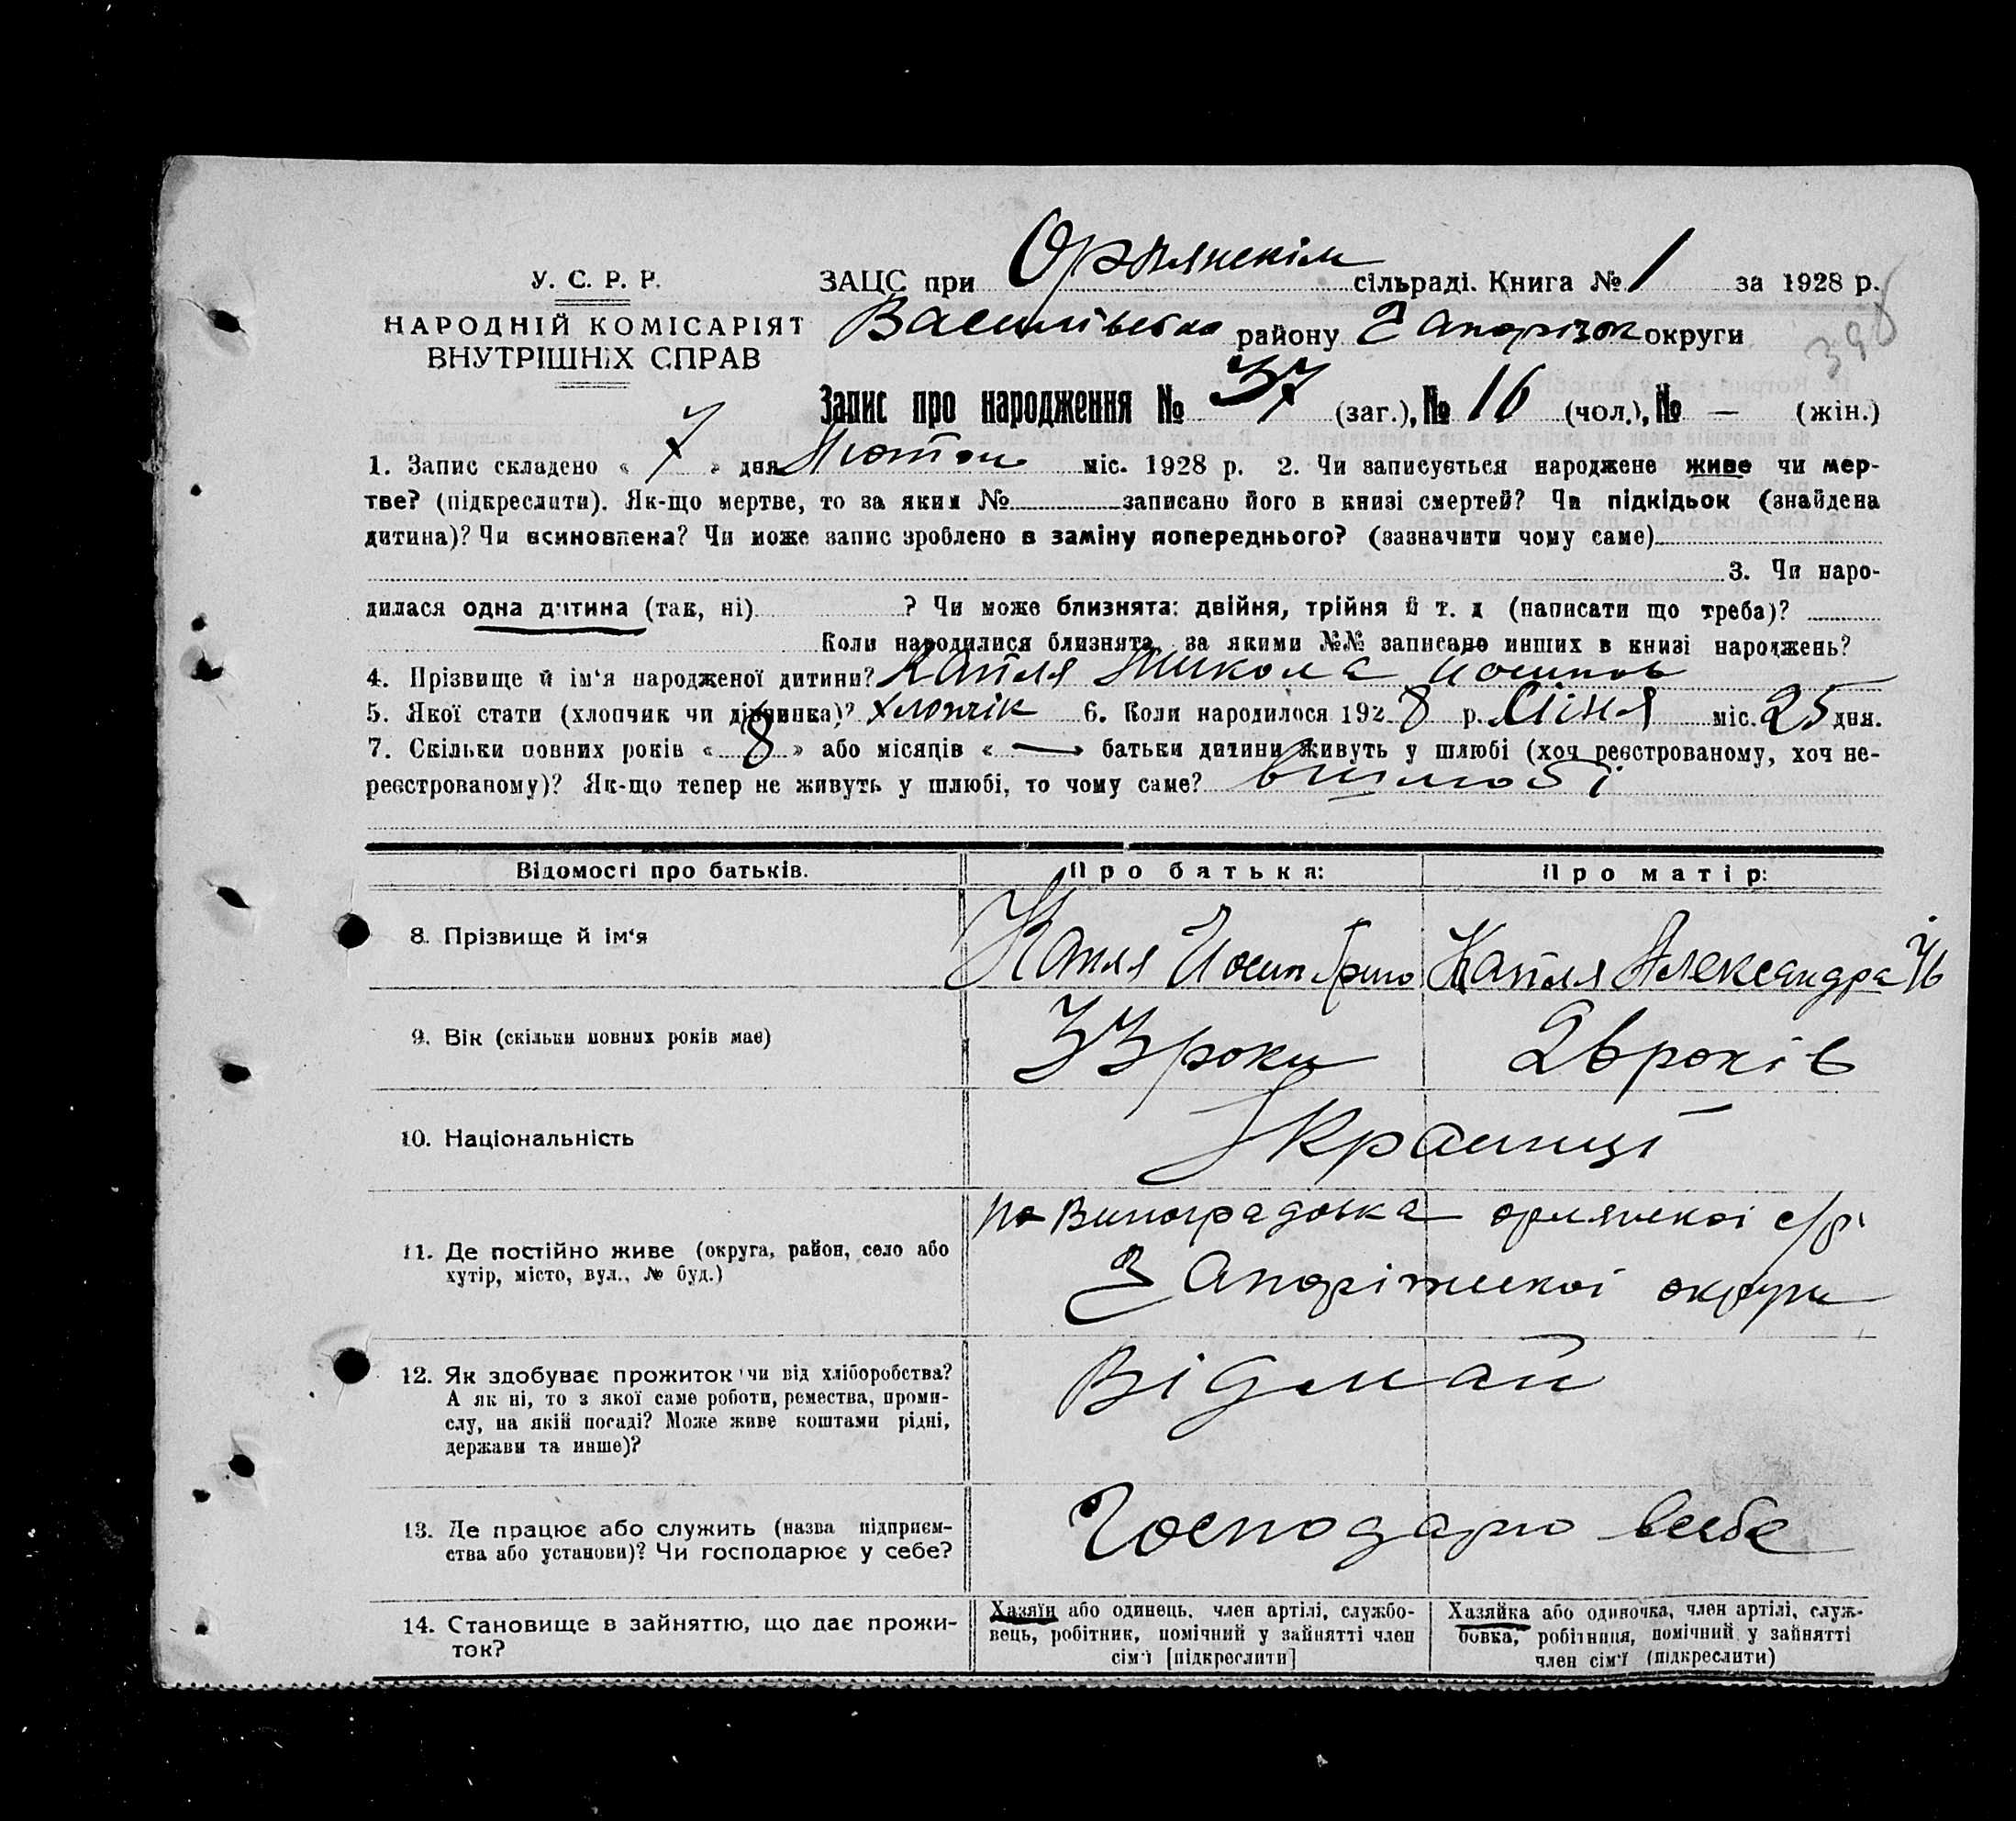 У. С. Р. Р.
НАРОДНІЙ КОМІСАРІЯТ
ВНУТРІШНІХ СПРАВ
ЗАЦС при Орлянскім сільраді. Книга № 1 за 1928 р.
району округи
398
Запис про народження № 37 (заг.), № 16 (чол.), № — (жін.)
1. Запис складено « 7 » дня Лютого міс. 1928 р. 2. Чи записується народжене живе чи мер-
тве? (підкреслити). Як-що мертве, то за яким № записано його в книзі смертей? Чи підкідьок (знайдена
дитина)? Чи всиновлена? Чи може запис зроблено в заміну попереднього? (зазначити чому саме)
3. Чи наро-
дилася одна дитина (так, ні) ? Чи може близнята: двійня, трійня й т. д (написати що треба)?
Коли народилися близнята, за якими №№ записано инших в книзі народжень?
4. Прізвище й ім'я народженої дитини? Капля Микола
5. Якої стати (хлопчик чи дівчинка)? хлопчік 6. Коли народилося 1928 р. Січня міс. 25 дня.
7. Скільки повних років « 8 » або місяців « — » батьки дитини живуть у шлюбі (хоч реєстрованому, хоч не-
реєстрованому)? Як-що тепер не живуть у шлюбі, то чому саме? вшлюбі
Відомості про батьків. Про батька: Про матір:
8. Прізвище й ім'я Капля Йосип Капля Александра
9. Вік (скільки повних років має) 33 роки 26 років
10. Національність Українці
11. Де постійно живе (округа, район, село або
хутір, місто, вул., № буд.)
Виноградовка орлянскоі с/р
Запоріжскоі округи
12. Як здобуває прожиток чи від хліборобства?
А як ні, то з якої саме роботи, ремества, проми-
слу, на якій посаді? Може живе коштами рідні,
держави та инше)?
13. Де працює або служить (назва підприєм-
ства або установи)? Чи господарює у себе?
Господарю всебе
14. Становище в зайняттю, що дає прожи-
ток?
Хазяїн або одинець, член артілі, службо-
вець, робітник, помічний у зайнятті член
сім'ї [підкреслити]
Хазяйка або одиночка, член артілі, служ-
бовка, робітниця, помічний у зайнятті
член сім'ї (підкреслити)